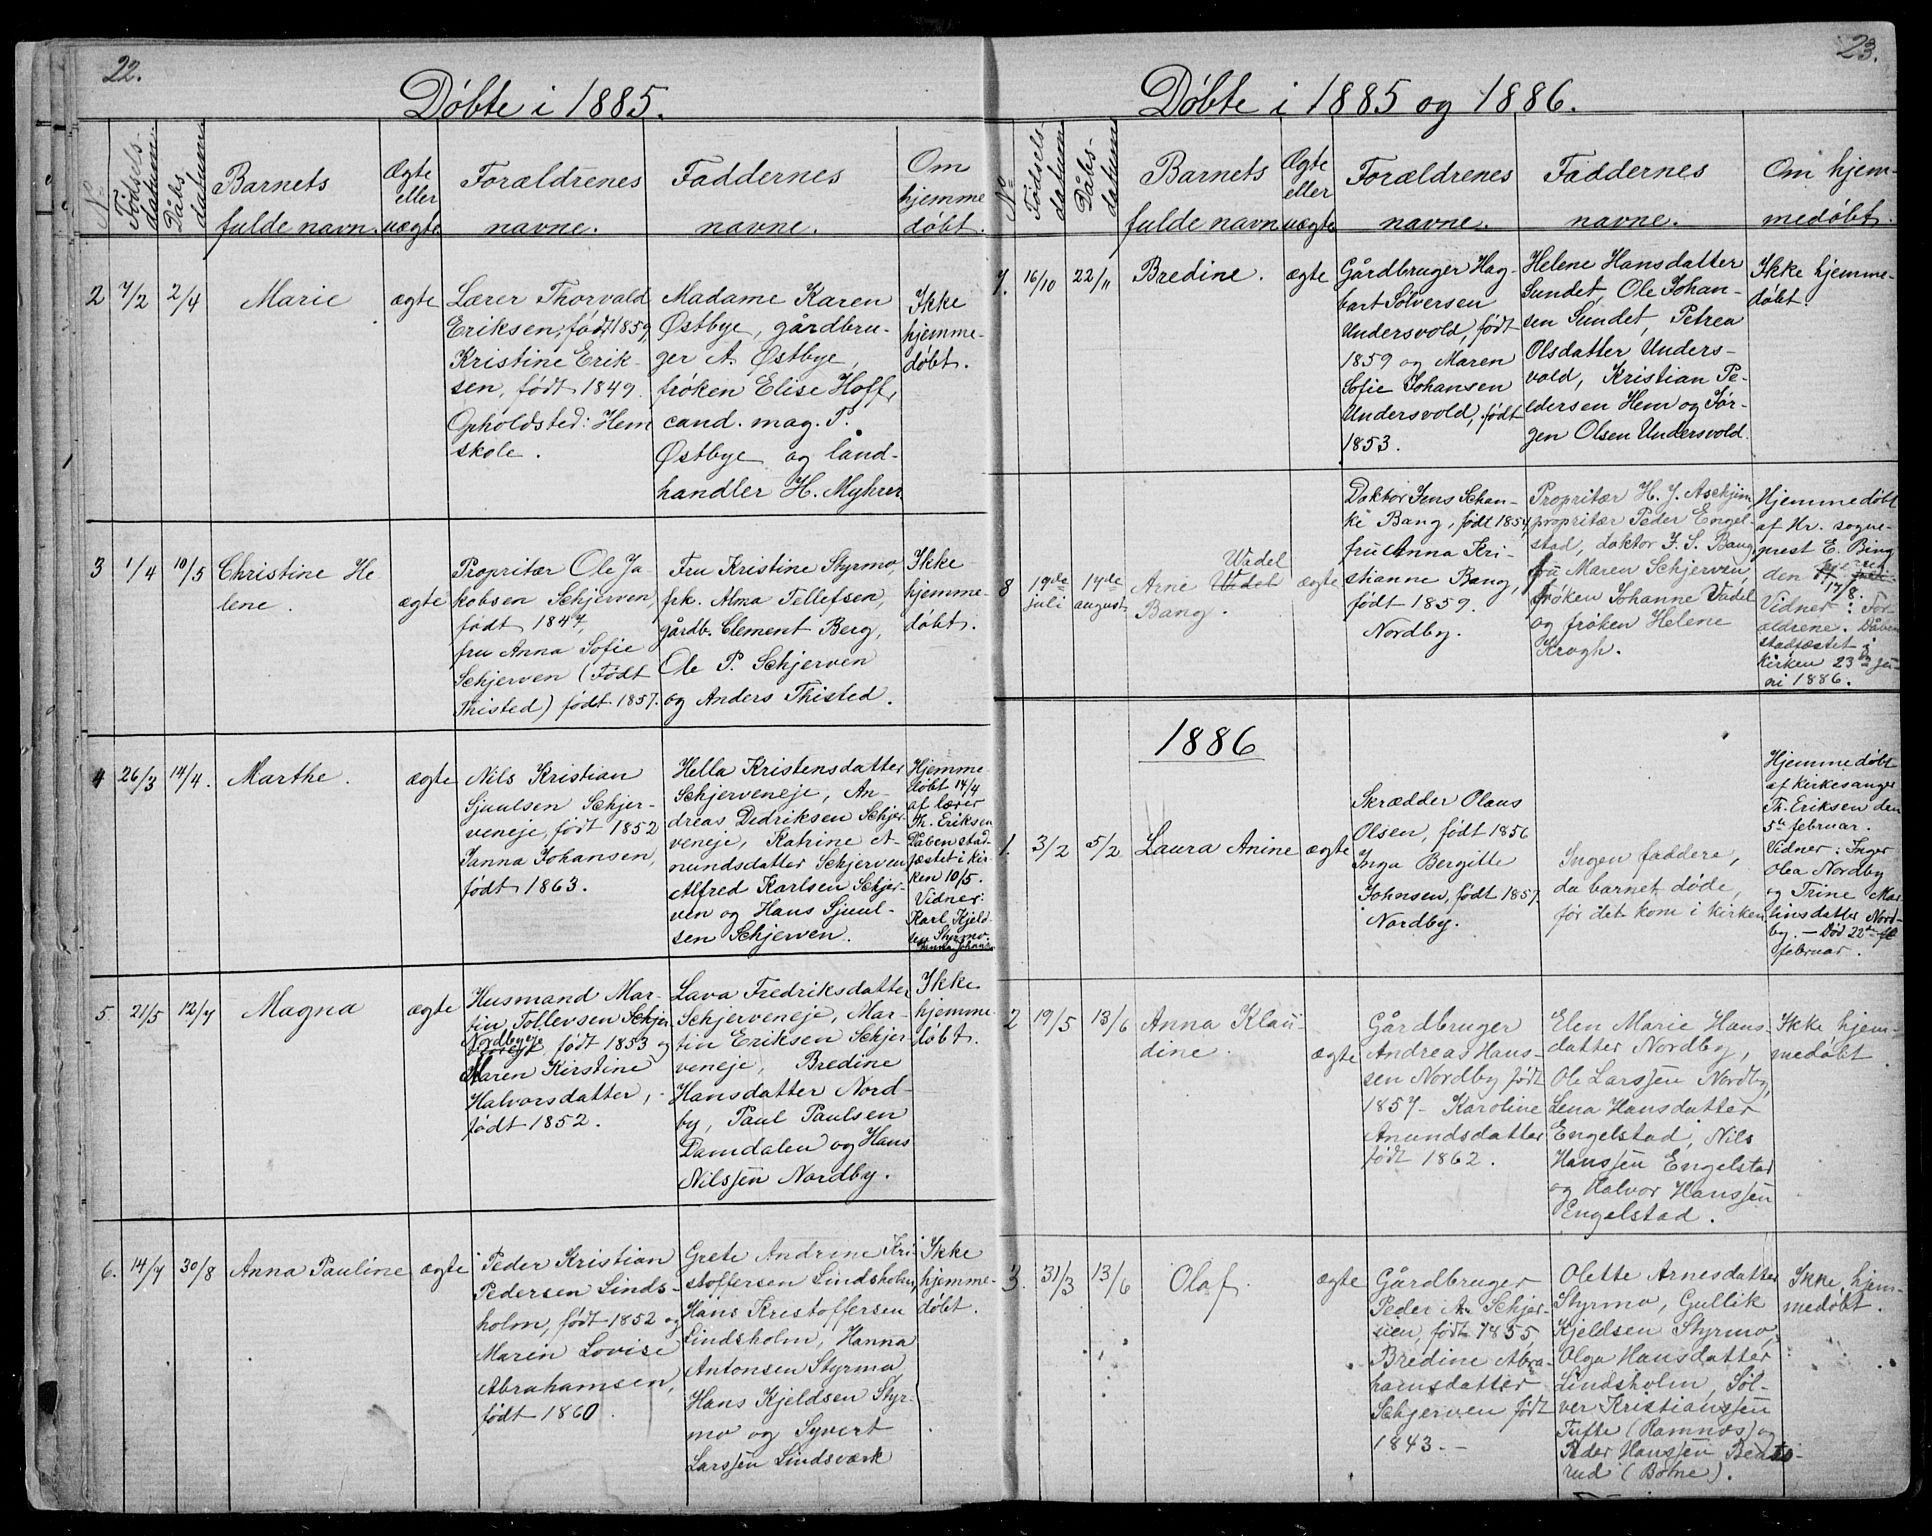 22.
Døbte i 1885.
No
Fødsels-
datum.
Dåbs
datum.
Barnets
fulde navn.
Ægte
eller
uægte
Forældrenes
navne.
Faddernes
navne.
Om
hjemme
døbt.
2
7/2
2/4
Marie
ægte
Lærer Thorvald
Eriksen, født 1859,
Kristine Erik-
sen, født 1849.
Opholdsted: Hem
skole.
Madame Karen
Østbye, gårdbru-
ger A. Østbye,
frøken Elise Hoff,
cand. mag. P.
Østbye og land-
handler H. Myhrer
Ikke
hjemme-
døbt.
3
1/4
10/5
Christine He
lene.
ægte
Propritær Ole Ja-
kobsen Schjerven,
født 1847,
fru Anna Sofie
Schjerven (Født
Thisted) født 1857.
Fru Kristine Styrmo,
frk. Alma Tellefsen,
gårdb. Clement Berg,
Ole P. Schjerven
og Anders Thisted.
Ikke
hjemme-
døbt.
4
26/3
14/4.
Marthe.
ægte
Nils Kristian
Sjuulsen Schjer-
veneje, født 1852
Janna Johansen,
født 1863.
Hella Kristensdatter
Schjerveneje, An-
dreas Didriksen Schjer
veneje, Katrine A-
nundsdatter Schjerven
Alfred Karlsen Schjer-
ven og Hans Sjuul-
sen Schjerven.
Hjemme-
døbt 14/4
af lærer
Th. Eriksen
Dåben stad-
fæstet i kir-
ken 10/5.
Vidner:
Karl Kjeld-
sen Styrmo.
Janna Johansen
5.
21/5
12/7
Magna
ægte
Husmand Mar-
tin Tollevsen Schjer
Nordbyeje
født 1853 og
Maren Kirstine
Halvorsdatter,
født 1852.
Lava Fredriksdatter
Schjerveneje, Mar-
tin Eriksen Schjer-
veneje, Bredine
Hansdatter Nord-
by, Paul Paulsen
Damdalen og Hans
Nilssen Nordby.
Ikke
hjemme-
døbt.
6.
14/7
30/8
Anna Pauline
ægte
Peder Kristian
Pedersen Linds-
holm, født 1852 og
Maren Lovise
Abrahamsen,
født 1860.
Grete Andrine Kri-
stoffersen Lindsholm,
Hans Kristoffersen
Lindsholm, Hanna
Antonsen Styrmo
Hans Kjeldsen Styr-
mo og Syvert
Larssen Lindsværk
Ikke
hjemme-
døbt.
23.
Døbte i 1885 og 1886.
No
Fødsels-
datum
Dåbs-
datum
Barnets
fulde navn
Ægte
eller
uægte
Forældrenes
navne.
Faddernes
navne.
Om hjem-
medøbt.
7.
16/10
22/11
Bredine.
ægte
Gårdbruger Hag-
bart Sølversen
Undersvold, født
1859 og Maren
Sofie Johansen
Undersvold, født
1853.
Helene Hansdatter
Sundet, Ole Johan-
sen Sundet, Petrea
Olsdatter Unders-
vold, Kristian Pe-
dersen Hem og Jør-
gen Olsen Undersvold.
Ikke hjemme-
døbt.
8
19de
juli
17de
august
Arne Vadel Wadel
Bang.
ægte
Doktor Jens Schan-
ke Bang, født 1854,
fru Anna Kri-
stianne Bang,
født 1859.
Nordby.
Propritær H. J. Aschjim,
propritær Peder Engel-
stad, doktor J. S. Bang,
fru Maren Schjerven,
frøken Johanne Vadel
og frøken Helene
Krogh.
Hjemmedøbt
af Hr. sogne-
prest E. Bing
den
17/8.
Vidner: For-
ældrene. Dåben
stadfæstet i
kirken 23de ja-
nuari 1886.
1886
1.
3/2
5/2
Laura Anine
ægte
Skrædder Olaus
Olsen, født 1856
Inga Bergitte
Johnsen, født 1857.
Nordby.
Ingen faddere,
da barnet døde,
før det kom i kirken
Hjemmedøbt
af kirkesanger
Th. Eriksen den
5te februar.
Vidner: Inger
Olea Nordby
og Trine Mar-
tinsdatter Nord-
by. – Død 22de fe
februar.
2
19/5
13/6
Anna Klau-
dine.
ægte
Gårdbruger
Andreas Hans-
sen Nordby født
1857 – Karoline
Anundsdatter
født 1862.
Elen Marie Hans-
datter Nordby,
Ole Larssen Nordby,
Lena Hansdatter
Engelstad, Nils
Hanssen Engelstad
og Halvor Hanssen
Engelstad.
Ikke hjem-
medøbt.
3.
31/3
13/6
Olaf.
ægte
Gårdbruger
Peder A. Schjer-
ven, født 1855
Bredine Abra-
hamsdatter
Schjerven født
1843. –
Olette Arnesdatter
Styrmo, Gullik
Kjeldsen Styrmo,
Olga Hansdatter
Lindsholm, Søl-
ver Kristianssen
Tufte (Ramnæs) og
Peder Hanssen
rud (Botne).
Ikke hjem-
medøbt.